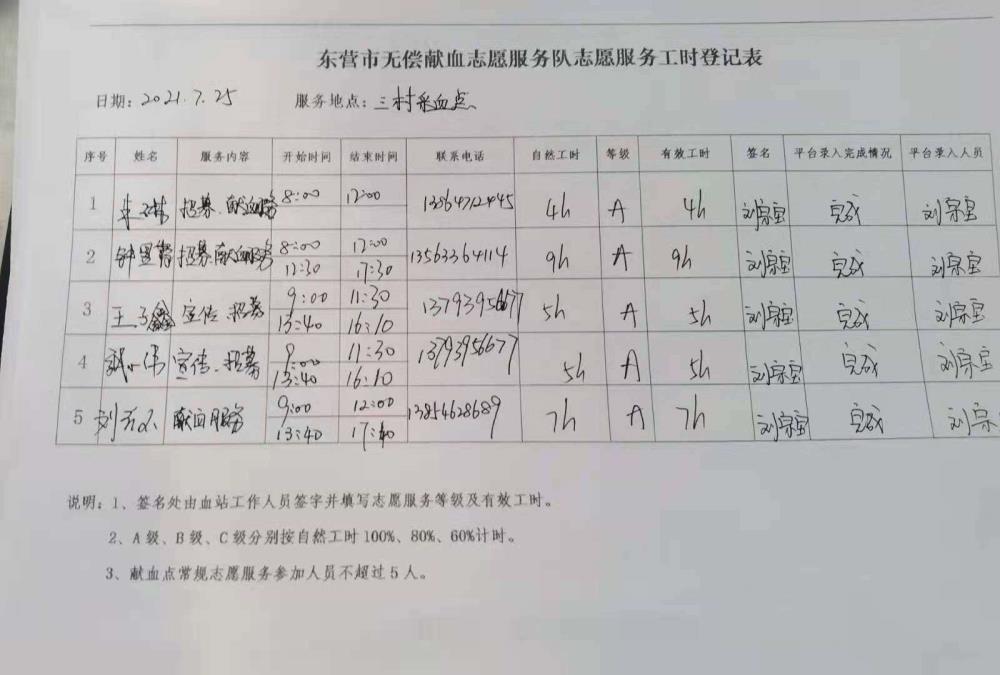 东营市无偿献血志愿服务队志愿服务工时登记表
日期:2021.7.25 服务地点:三村采血点
序号 姓名 服务内容 开始时间 结束时间 联系电话 自然工时 等级 有效工时 签名 平台录入完成情况 平台录入人员
1 招募、献血服务 8:00 12:00 13864712445 4h A 4h 刘宗宝 完成 刘宗宝
2 招募、献血服务 8:00 12:00 13563364114 9h A 9h 刘宗宝 完成 刘宗宝
12:30 17:30
3 王子鑫 宣传、招募 9:00 11:30 13793956677 5h A 5h 刘宗宝 完成 刘宗宝
13:40 16:10
4 宣传、招募 9:00 11:30 13793956677 5h A 5h 刘宗宝 完成 刘宗宝
13:40 16:10
5 刘 献血服务 9:00 12:00 13854628689 7h A 7h 刘宗宝 完成 刘宗
13:40 17:40
说明:1、签名处由血站工作人员签字并填写志愿服务等级及有效工时。
2、A级、B级、C级分别按自然工时100%、80%、60%计时。
3、献血点常规志愿服务参加人员不超过5人。